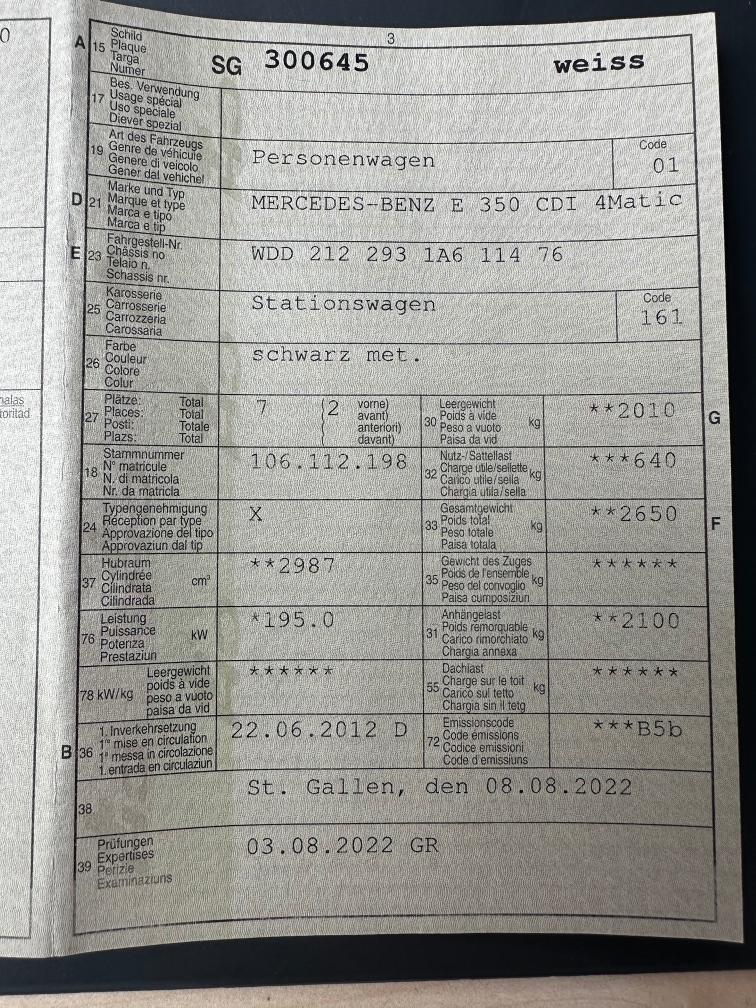 3
A 15 Schild
Plaque
Targa
Numer
SG 300645 weiss
17 Bes. Verwendung
Usage spécial
Uso speciale
Diever spezial
19 Art des Fahrzeugs
Genre de véhicule
Genere di veicolo
Gener dal vehichel
Personenwagen
Code
01
D 21 Marke und Typ
Marque et type
Marca e tipo
Marca e tip
MERCEDES-BENZ E 350 CDI 4Matic
E 23 Fahrgestell-Nr.
Châssis no
Telaio n.
Schassis nr.
WDD 212 293 1A6 114 76
25 Karosserie
Carrosserie
Carrozzeria
Carossaria
Stationswagen
Code
161
26 Farbe
Couleur
Colore
Colur
schwarz met.
27 Plätze: Total
Places: Total
Posti: Totale
Plazs: Total
7 (2 vorne)
avant)
anteriori)
davant)
30 Leergewicht
Poids à vide
Peso a vuoto
Paisa da vid
kg
**2010
G
18 Stammnummer
N° matricule
N. di matricola
Nr. da matricla
106.112.198
32 Nutz-/Sattellast
Charge utile/sellette
Carico utile/sella
Chargia utila/sella
kg
***640
24 Typengenehmigung
Réception par type
Approvazione del tipo
Approvaziun dal tip
X
33 Gesamtgewicht
Poids total
Peso totale
Paisa totala
kg
**2650
F
37 Hubraum
Cylindrée
Cilindrata
Cilindrada
cm³
**2987
35 Gewicht des Zuges
Poids de l'ensemble
Peso del convoglio
Paisa cumposiziun
kg
******
76 Leistung
Puissance
Potenza
Prestaziun
kW
*195.0
31 Anhängelast
Poids remorquable
Carico rimorchiato
Chargia annexa
kg
**2100
78 kW/kg Leergewicht
poids à vide
peso a vuoto
paisa da vid
******
55 Dachlast
Charge sur le toit
Carico sul tetto
Chargia sin il tetg
kg
******
B 36 1. Inverkehrsetzung
1re mise en circulation
1a messa in circolazione
1. entrada en circulaziun
22.06.2012 D
72 Emissionscode
Code émissions
Codice emissioni
Code d'emissiuns
***B5b
38
St. Gallen, den 08.08.2022
39 Prüfungen
Expertises
Perizie
Examinaziuns
03.08.2022 GR